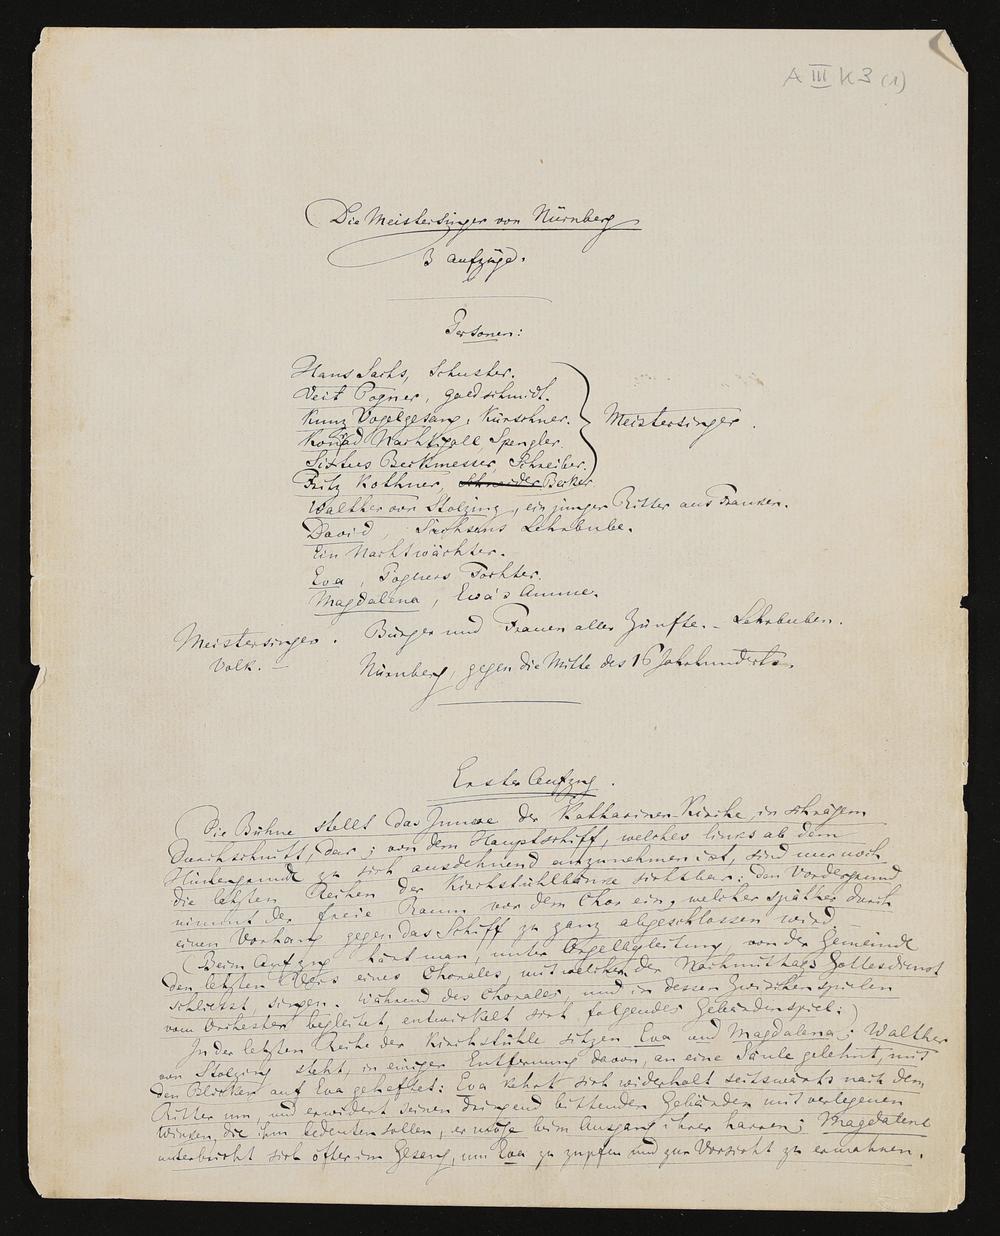 A III K 3 (1)
Die Meistersinger von Nürnberg
3 Aufzüge.
Personen:
Hans Sachs, Schuster.
Veit Pogner, Goldschmidt.
Kunz Vogelgesang, Kürschner.
Konrad Nachtigall Spengler.
Sixtus Beckmesser, Schreiber.
Fritz Kothner, Schneider Becker
Meistersinger.
Walther von Stolzing, ein junger Ritter aus Franken.
David, Sachsens Lehrbube.
Ein Nachtwächter.
Eva, Pogners Tochter.
Magdalena, Eva's Amme.
Meistersinger. Bürger und Frauen aller Zünfte. - Lehrbuben.
Volk. - Nürnberg, gegen die Mitte des 16 Jahrhunderts.
Erster Aufzug.
Die Bühne stellt das Innere der Katharinen-Kirche, in schrägem
Durchschnitt, dar; von dem Hauptschiff, welches links ab dem
Hintergrunde zu sich ausdehnend anzunehmen ist, sind nur noch
die letzten Reihen der Kirchstühlbänke sichtbar: den Vordergrund
nimmt der freie Raum vor dem Chor ein, welcher später durch
einen Vorhang gegen das Schiff zu ganz abgeschlossen wird.
(Beim Aufzug hört man, unter Orgelbegleitung, von der Gemeinde
den letzten Vers eines Chorales, mit welchem der Nachmittags Gottesdienst
schliesst, singen. Während des Chorales, und in dessen Zwischenspielen
vom Orchester begleitet, entwickelt sich folgendes Gebärdenspiel:)
In der letzten Reihe der Kirchstühle sitzen Eva und Magdalena; Walther
von Stolzing steht, in einiger Entfernung davon, an eine Säule gelehnt, mit
den Blicken auf Eva geheftet: Eva kehrt sich widerholt seitswärts nach dem
Ritter um, und erwidert seinen dringend bittenden Gebärden mit verlegenen
Winken, die ihm bedeuten sollen, er möge beim Ausgang ihrer harren; Magdalene
unterbricht sich öfter im Gesang, um Eva zu zupfen und zur Vorsicht zu ermahnen.